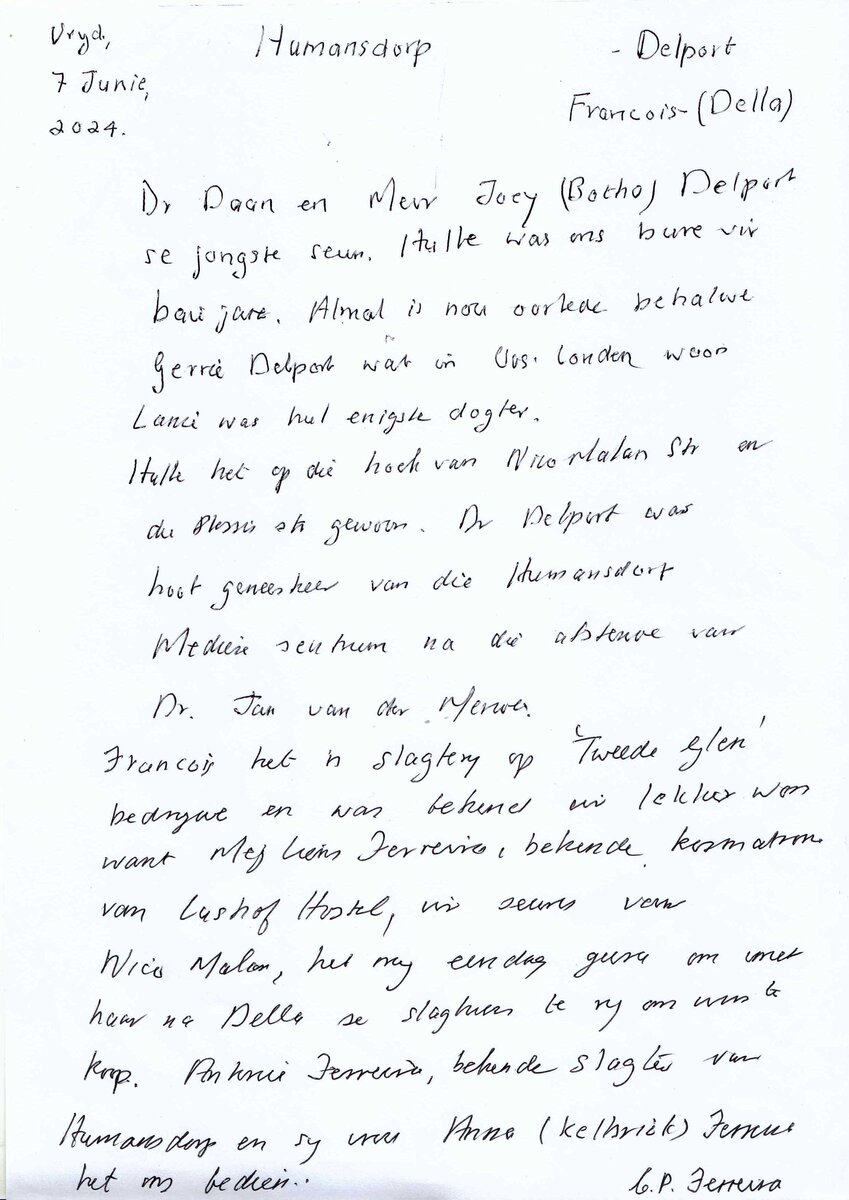 Vryd,
7 Junie,
2024.
Humansdorp
- Delport
Francois - (Della)
Dr Daan en Mevr Joey (Botha) Delport
se jongste seun. Hulle was ons bure vir
baie jare. Almal is nou oorlede behalwe
Gerrie Delport wat in Oos. Londen woon
Lanie was hul enigste dogter.
Hulle het op die hoek van Nico Malan Str en
du Plessis str gewoon. Dr Delport was
hoof geneesheer van die Humansdorp
Mediese sentrum na die afsterwe van
Dr. Jan van der Merwe.
Francois het 'n slagtery op 'Tweede Eflen'
bedrywe en was bekend vir lekker wors
want Mej Ferreira, bekende kosmatrone
van Lushof Hostel, vir seuns van
Nico Malan, het my eendag gevra om met
haar na Della se slaghuis te ry om wors te
koop. Antonie Ferreira, bekende slagter van
Humansdorp en sy vrou Anna (Kelbrick) Ferreira
het ons bedien..
C.P. Ferreira